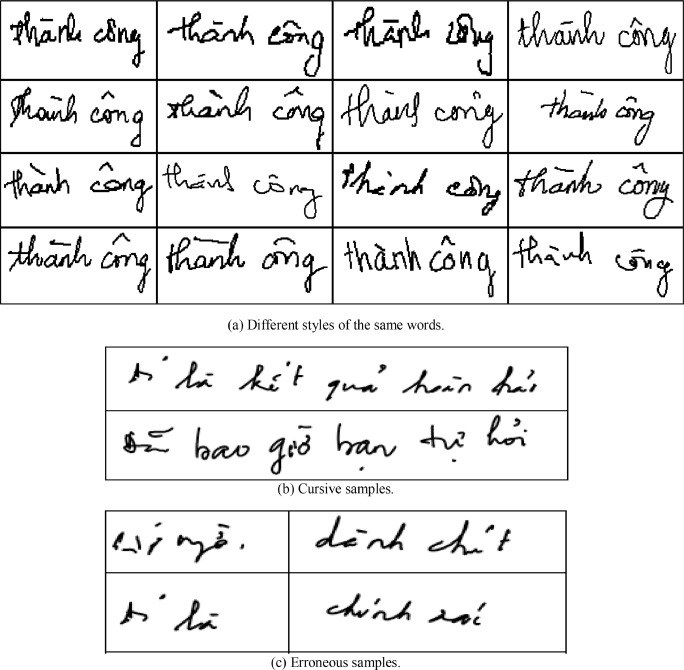 thành công thành công thành công thành công
thành công thành công thành công thành công
thành công thành công thành công thành công
thành công thành công thành công thành công
(a) Different styles of the same words.
là kết quả hoàn hảo
bao giờ bạn tự hỏi
(b) Cursive samples.
ngộ. dành chút
là chính xác
(c) Erroneous samples.